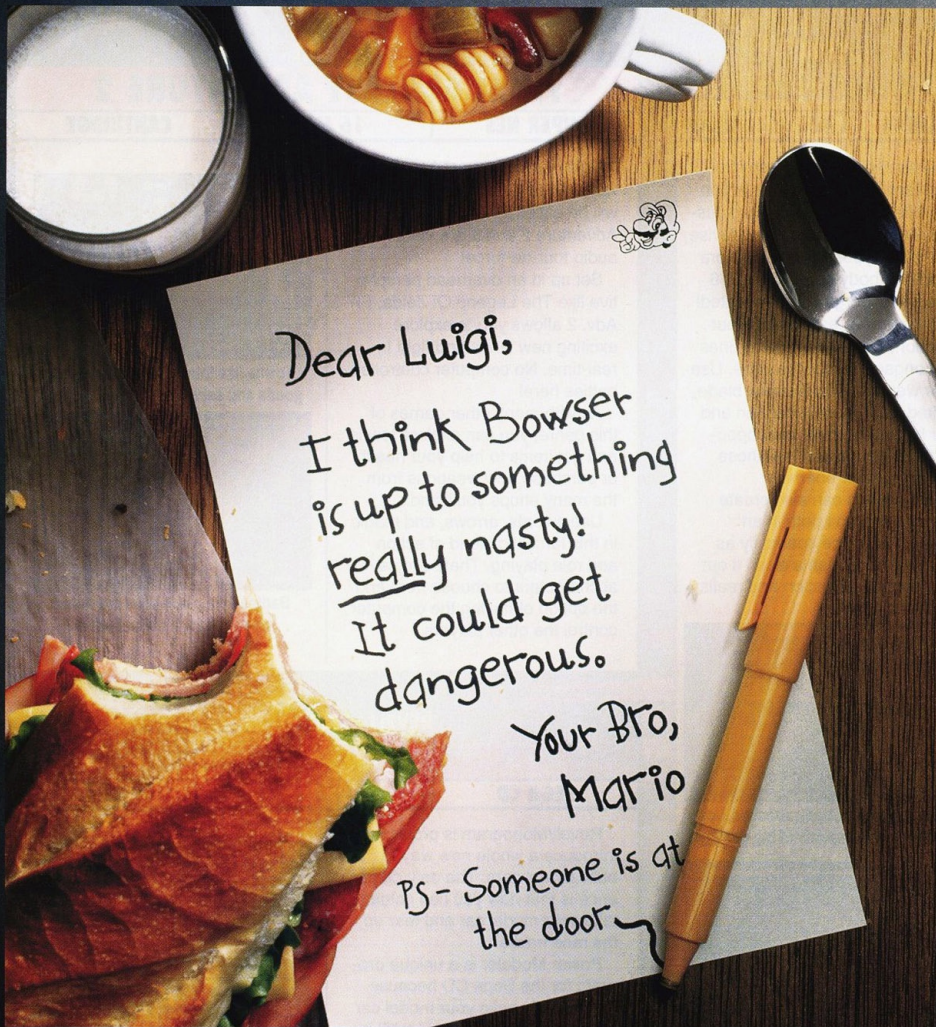 Dear Luigi,
I think Bowser
is up to something
really nasty!
It could get
dangerous.
Your Bro,
Mario
PS - Someone is at
the door